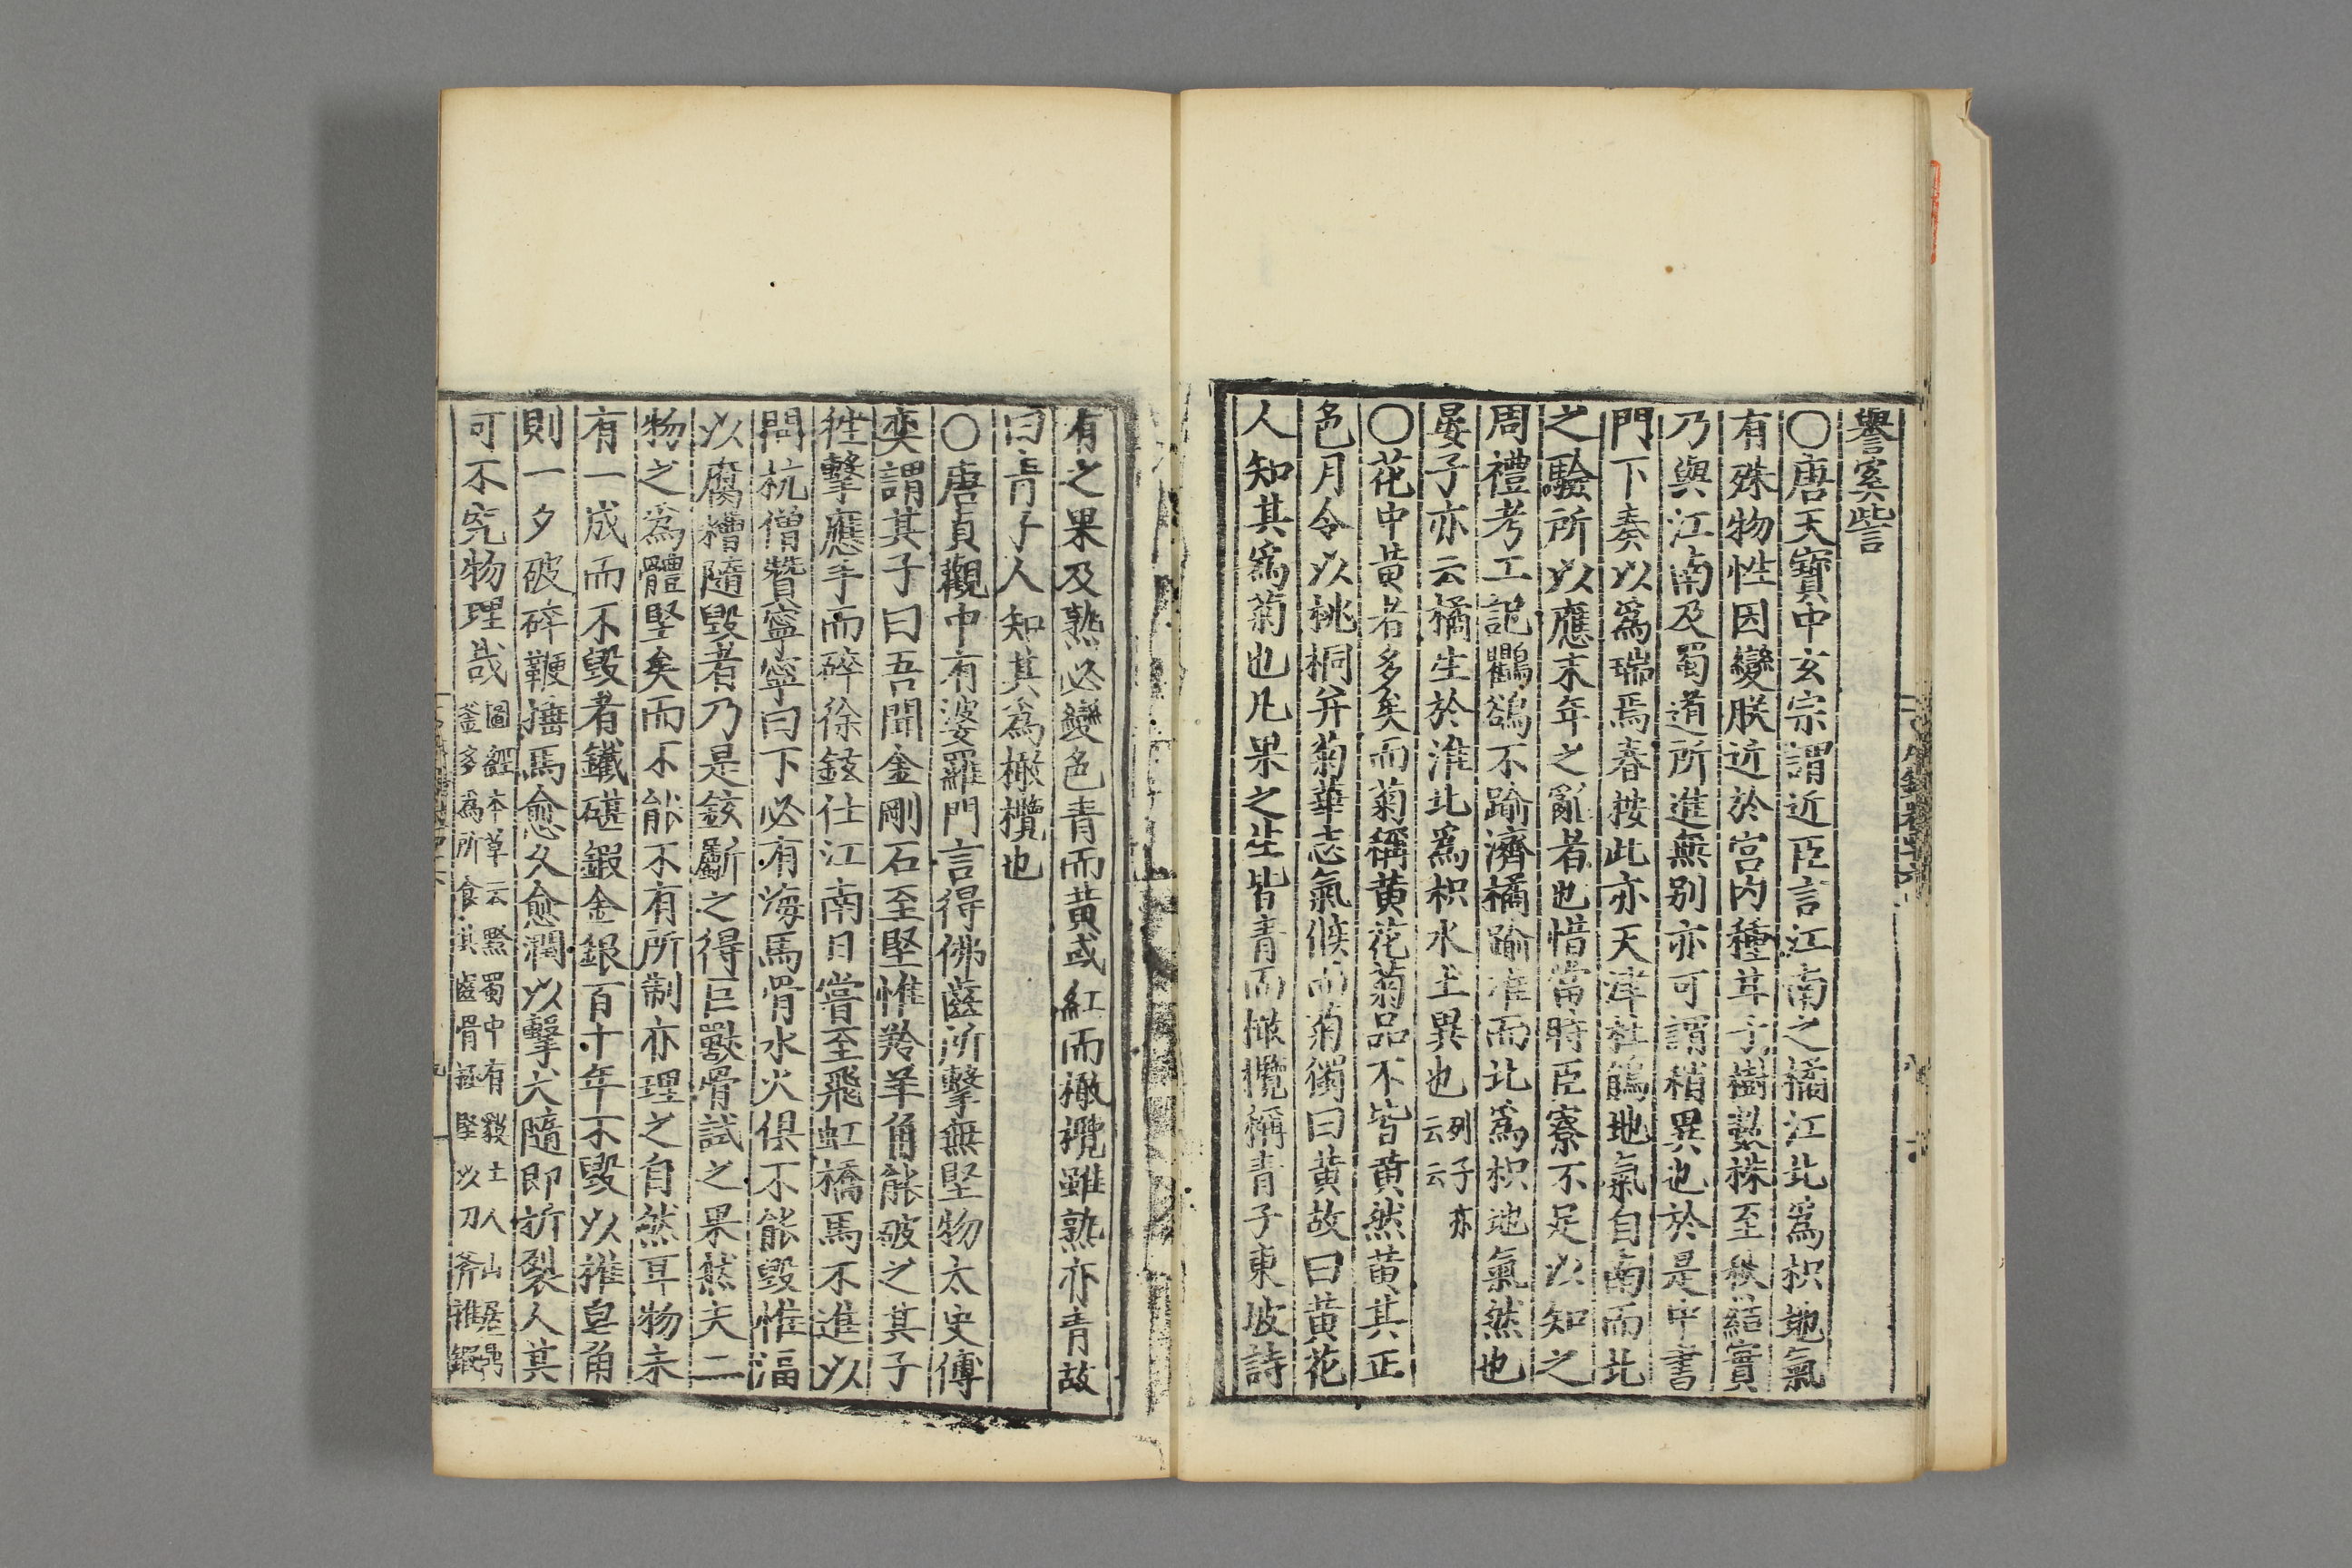 譽奚訾
○唐天寶中玄宗謂近臣言江南之橘江北爲枳地氣
有殊物性因變朕近於宮内種甘子樹數株至秋結實
乃與江南及蜀道所進無别亦可謂稍異也於是中書
門下奏以爲瑞焉春按此亦天津杜鵑地氣自南而北
之驗所以應末年之亂者也惜當時臣寮不足以知之
周禮考工記鸜鵒不踰濟橘踰淮而北爲枳地氣然也
晏子亦云橘生於淮北爲枳水土異也列子亦云云
○花中黃者多矣而菊稱黃花菊品不皆黃然黃其正
色月令以桃桐并菊華志氣候而菊獨曰黃故曰黃花
人知其爲菊也凡果之生皆青而橄欖稱青子東坡詩
有之果及熟必變色青而黃或紅而橄欖雖熟亦青故
曰青子人知其爲橄欖也
○唐貞觀中有婆羅門言得佛齒所擊無堅物太史傅
奕謂其子曰吾聞金剛石至堅惟羚羊角能破之其子
徃擊應手而碎徐鉉仕江南日嘗至飛虹橋馬不進以
問杭僧贊寧寧曰下必有海馬骨水火俱不能毀惟漚
以腐糟隨毀者乃是鉉斸之得巨獸骨試之果然夫二
物之爲體堅矣而不能不有所制亦理之自然耳物未
有一成而不毀者鐵碪鍛金銀百十年不毀以椎皂角
則一夕破碎鞭捶馬愈久愈潤以擊犬隨即折裂人莫
可不究物理哉圖經本草云黔蜀中有貘土人山居鼎
釜多爲所食其齒骨極堅以刀斧椎鍛